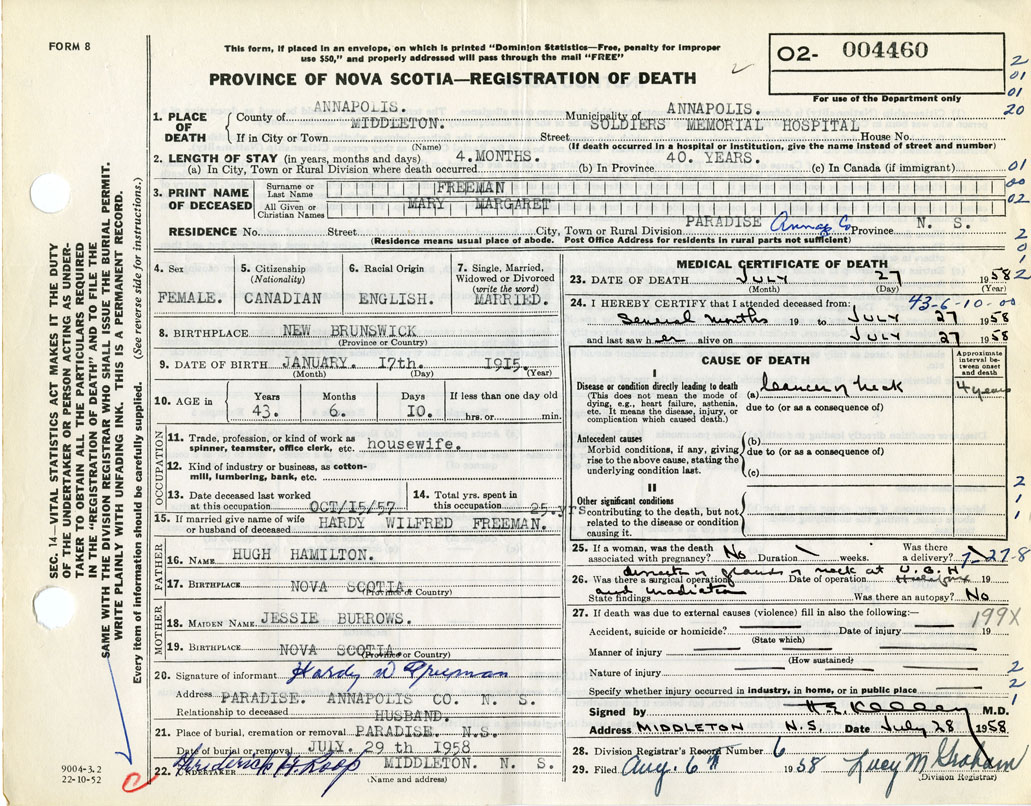 FORM 8
This form, if placed in an envelope, on which is printed "Dominion Statistics—Free, penalty for improper
use $50," and properly addressed will pass through the mail "FREE"
PROVINCE OF NOVA SCOTIA—REGISTRATION OF DEATH
O2- 004460
For use of the Department only
2
01
01
20
1. PLACE OF DEATH
County of ANNAPOLIS. Municipality of ANNAPOLIS.
If in City or Town MIDDLETON. Street SOLDIERS MEMORIAL HOSPITAL House No.
(Name) (If death occurred in a hospital or institution, give the name instead of street and number)
2. LENGTH OF STAY (in years, months and days)
(a) In City, Town or Rural Division where death occurred 4.MONTHS. (b) In Province 40. YEARS. (c) In Canada (if immigrant)
01
00
02
3. PRINT NAME OF DECEASED
Surname or Last Name FREEMAN
All Given or Christian Names MARY MARGARET
RESIDENCE No. Street City, Town or Rural Division PARADISE Annap Co Province N. S.
(Residence means usual place of abode. Post Office Address for residents in rural parts not sufficient)
2
0
1
2
SEC. 14—VITAL STATISTICS ACT MAKES IT THE DUTY
OF THE UNDERTAKER OR PERSON ACTING AS UNDER-
TAKER TO OBTAIN ALL THE PARTICULARS REQUIRED
IN THE "REGISTRATION OF DEATH" AND TO FILE THE
SAME WITH THE DIVISION REGISTRAR WHO SHALL ISSUE THE BURIAL PERMIT.
WRITE PLAINLY WITH UNFADING INK. THIS IS A PERMANENT RECORD.
Every item of information should be carefully supplied. (See reverse side for instructions.)
4. Sex FEMALE.
5. Citizenship (Nationality) CANADIAN
6. Racial Origin ENGLISH.
7. Single, Married, Widowed or Divorced (write the word) MARRIED.
8. BIRTHPLACE NEW BRUNSWICK
(Province or Country)
9. DATE OF BIRTH JANUARY. 17th. 1915.
(Month) (Day) (Year)
10. AGE in Years 43. Months 6. Days 10. If less than one day old hrs. or min.
OCCUPATION
11. Trade, profession, or kind of work as spinner, teamster, office clerk, etc. housewife.
12. Kind of industry or business, as cotton-mill, lumbering, bank, etc.
13. Date deceased last worked at this occupation OCT/15/57
14. Total yrs. spent in this occupation 25.yrs
15. If married give name of wife or husband of deceased HARDY WILFRED FREEMAN.
FATHER
16. NAME HUGH HAMILTON.
17. BIRTHPLACE NOVA SCOTIA.
(Province or Country)
MOTHER
18. MAIDEN NAME JESSIE BURROWS.
19. BIRTHPLACE NOVA SCOTIA.
(Province or Country)
20. Signature of informant Hardy W Freeman
Address PARADISE. ANNAPOLIS CO. N. S.
Relationship to deceased HUSBAND.
21. Place of burial, cremation or removal PARADISE. N.S.
Date of burial or removal JULY. 29 th 1958
22. UNDERTAKER Frederick W Roop MIDDLETON. N. S.
(Name and address)
9004-3.2
22-10-52
MEDICAL CERTIFICATE OF DEATH
23. DATE OF DEATH JULY 27 1958
(Month) (Day) (Year)
24. I HEREBY CERTIFY that I attended deceased from: 43-6-10-00
Several months 19 to JULY 27 1958
and last saw her alive on JULY 27 1958
CAUSE OF DEATH
Approximate interval between onset and death
I
Disease or condition directly leading to death
(This does not mean the mode of dying, e.g., heart failure, asthenia, etc. It means the disease, injury, or complication which caused death.)
(a) Cancer of neck 4 years
due to (or as a consequence of)
Antecedent causes
Morbid conditions, if any, giving rise to the above cause, stating the underlying condition last.
(b)
due to (or as a consequence of)
(c)
II
Other significant conditions
contributing to the death, but not related to the disease or condition causing it.
2
1
1
25. If a woman, was the death associated with pregnancy? No Duration weeks. Was there a delivery? 7-27-8
glands of neck at V.G.H
26. Was there a surgical operation Date of operation Halifax 19
and radiation
State findings Was there an autopsy? No
27. If death was due to external causes (violence) fill in also the following:— 199X
Accident, suicide or homicide? Date of injury 19
(State which)
Manner of injury
(How sustained)
Nature of injury
Specify whether injury occurred in industry, in home, or in public place
2
2
1
Signed by H E Kelley M.D.
Address MIDDLETON N.S. Date July 28 1958
28. Division Registrar's Record Number 6
29. Filed Aug. 6th 1958 Lucy M Graham
(Division Registrar)